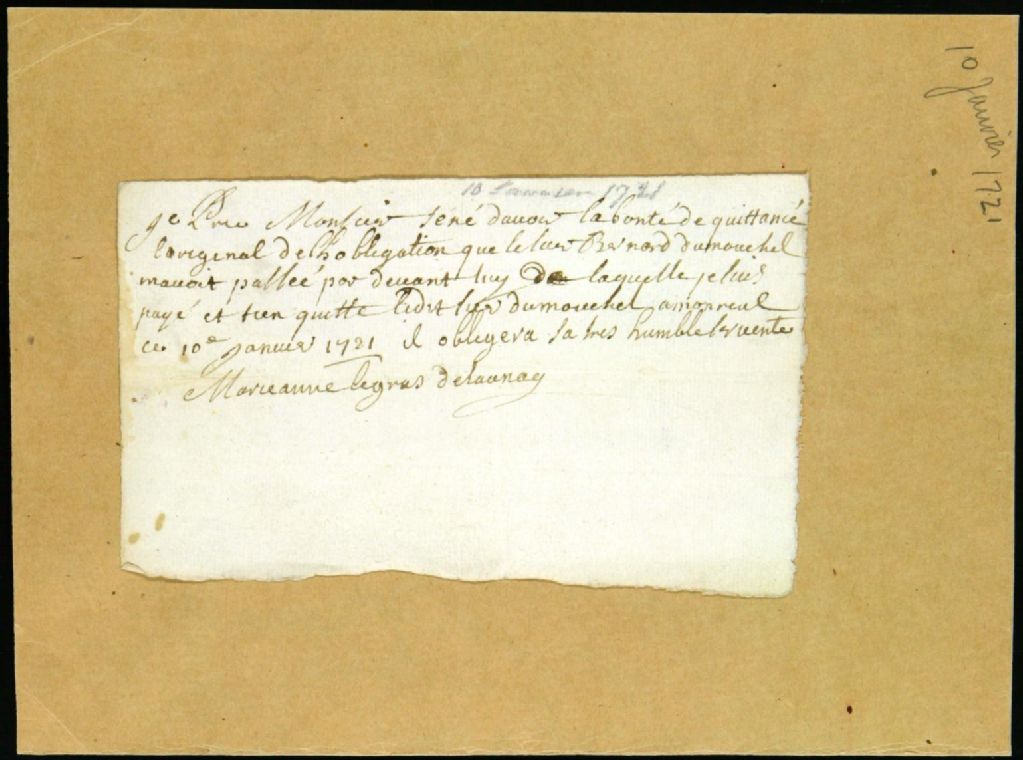 10 Janvier 1721
10 1721
Je Prie Monsieur Sené davoir la bonté de quittancé
lorigenal de lhobligation que le sieur Bernard Dumouchel
mavoit passeé par devant luy de laquelle je suis
payé et tien quitte ledit sieur Dumouchel a monreal
ce 10e Janvier 1721 il obligera sa tres humble servente
Marieanne legras delaunay